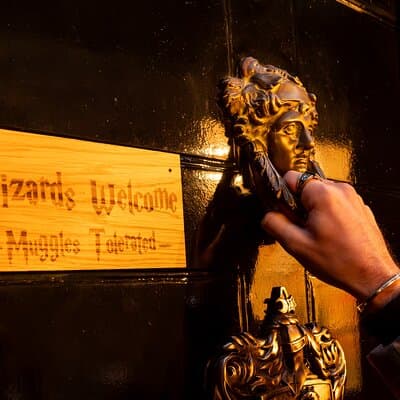 izards Welcome
Muggles Tolerated